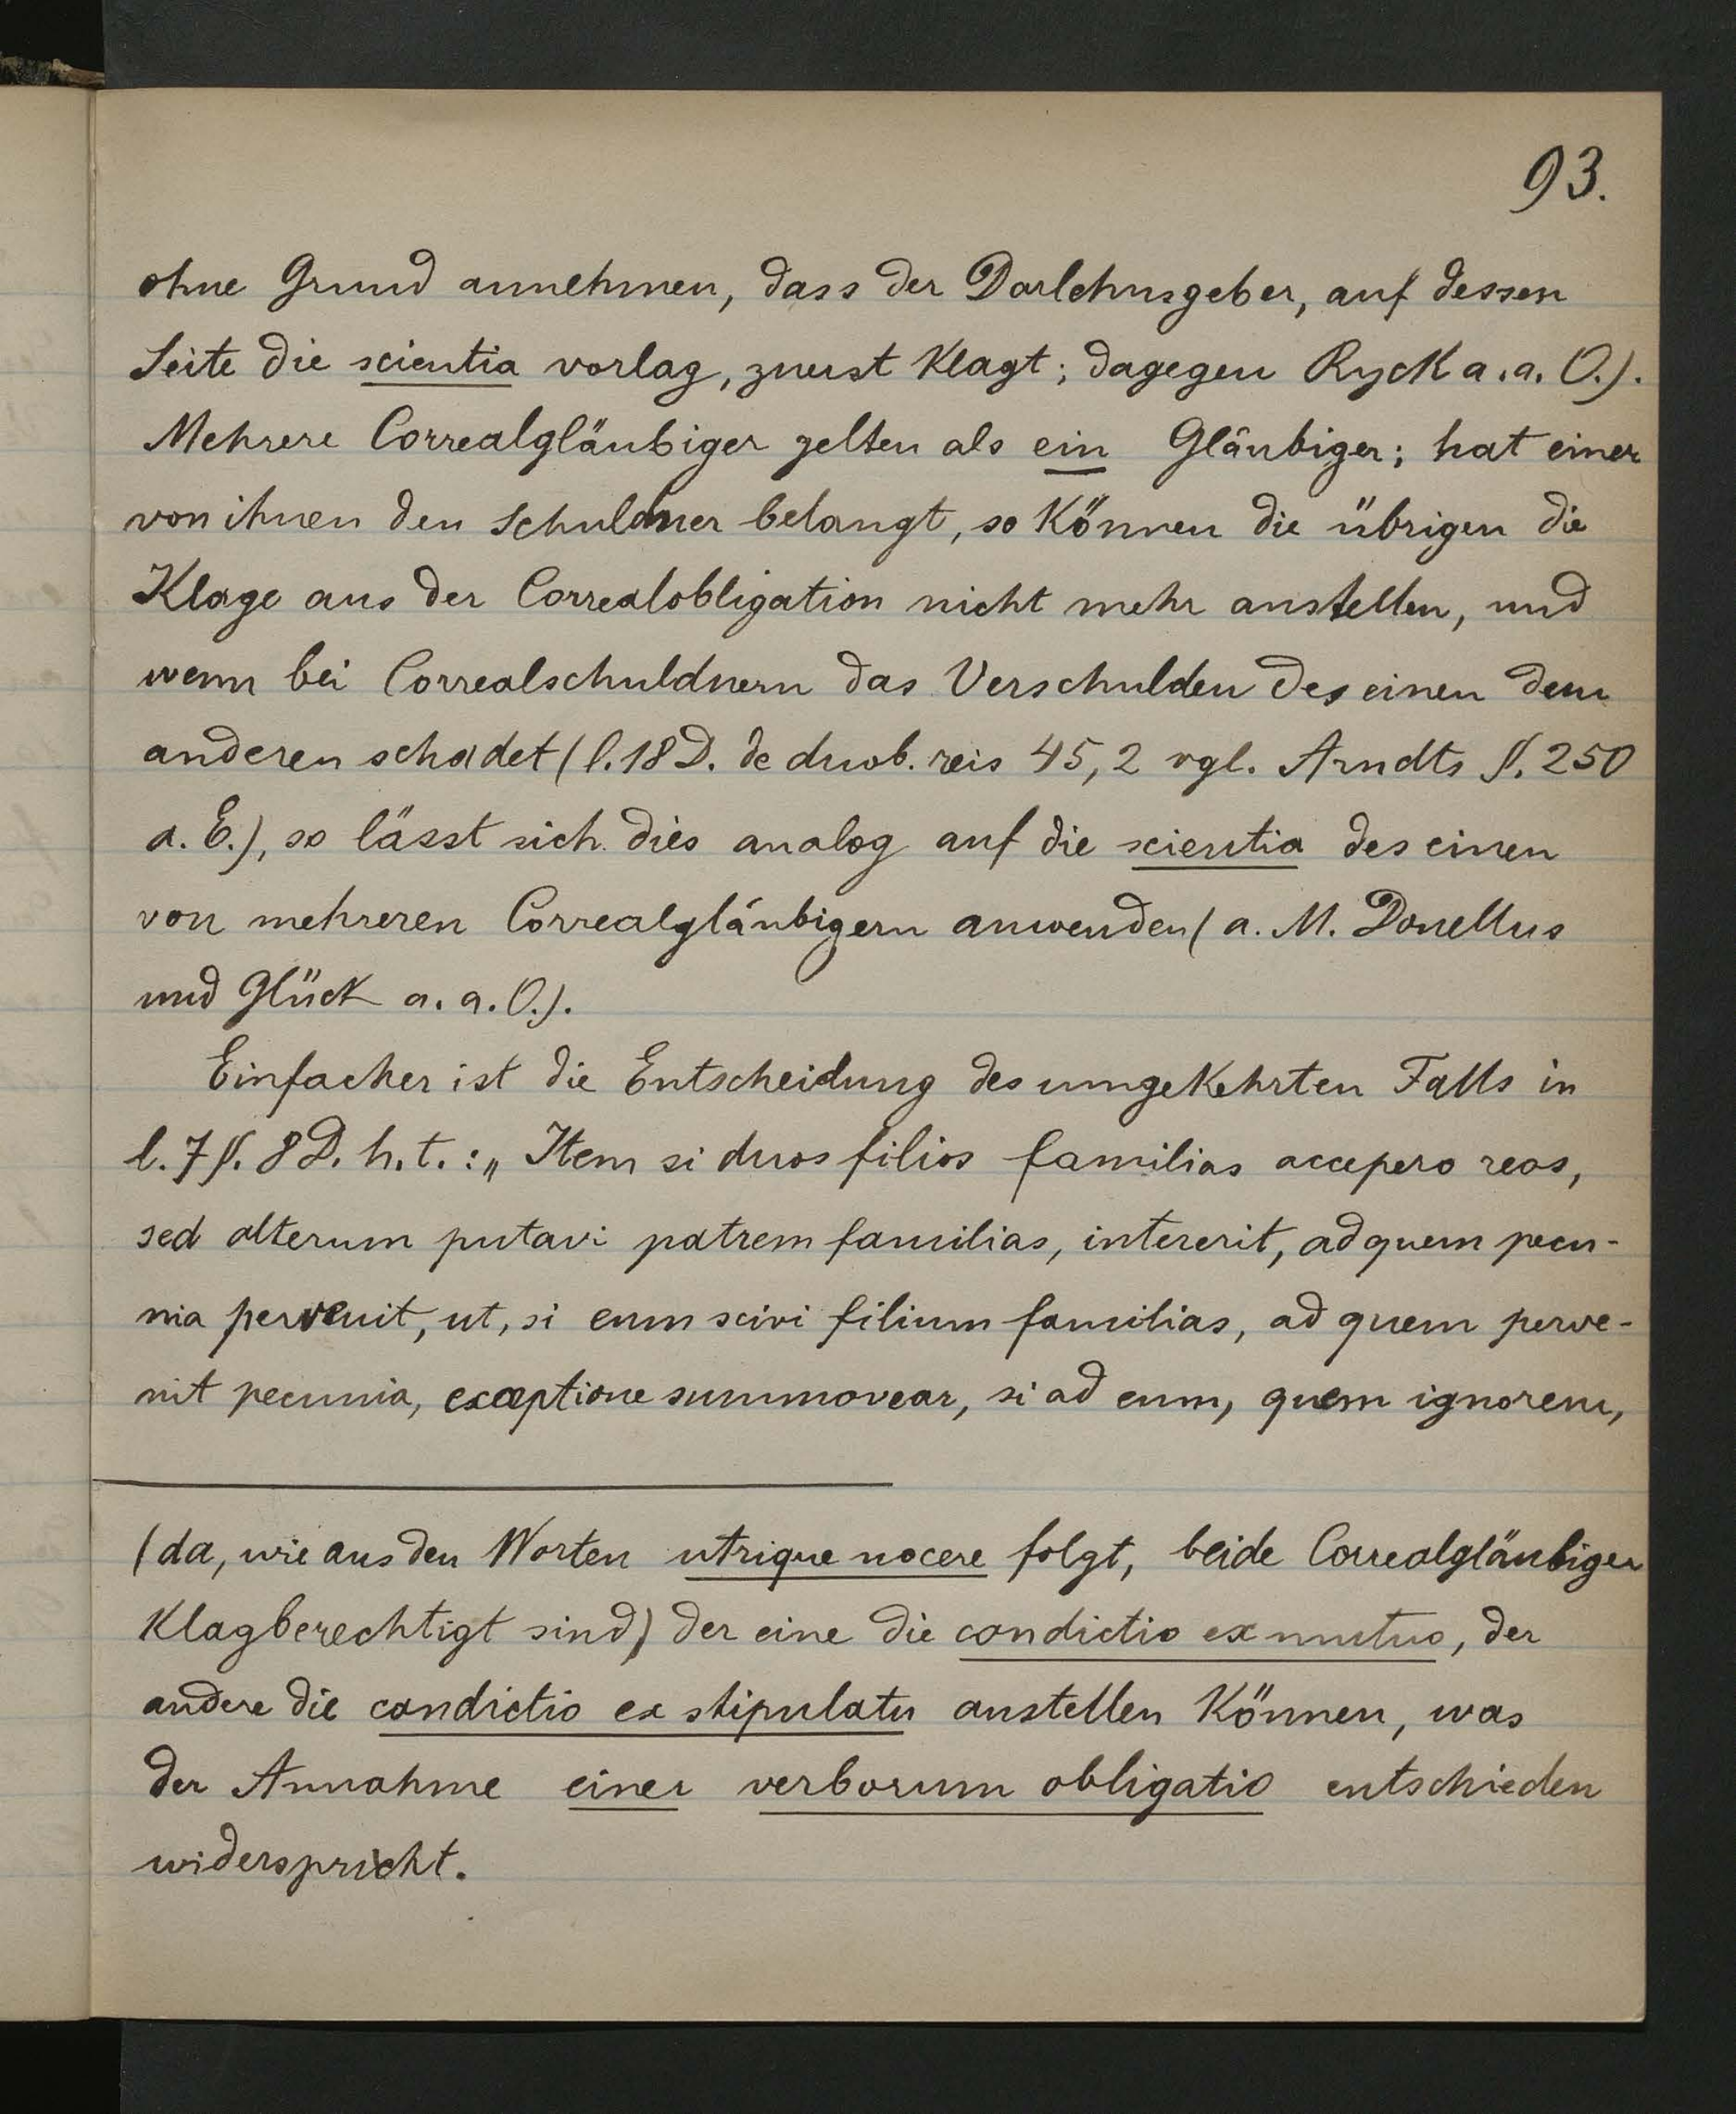 93.
ohne Grund annehmen, dass der Darlehnsgeber, auf dessen
Seite die scientia vorlag, zuerst klagt; dagegen Ryck a. a. O.).
Mehrere Correalgläubiger gelten als ein Gläubiger; hat einer
von ihnen den Schuldner belangt, so können die übrigen die
Klage aus der Correalobligation nicht mehr anstellen, und
wenn bei Correalschuldnern das Verschulden des einen dem
anderen schadet (l. 18 D. de duob. reis 45, 2 vgl. Arndts §. 250
a. E.), so lässt sich dies analog auf die scientia des einen
von mehreren Correalgläubigern anwenden (a. M. Donellus
und Glück a. a. O.).
Einfacher ist die Entscheidung des umgekehrten Falls in
l. 7 §. 8 D. h. t.: „Item si duos filios familias accepero reos,
sed alterum putavi patrem familias, intererit, ad quem pecu-
nia pervenit, ut, si eum scivi filium familias, ad quem perve-
nit pecunia, exceptione summovear, si ad eum, quem ignorem,
(da, wie aus den Worten utrique nocere folgt, beide Correalgläubiger
klagberechtigt sind) der eine die condictio ex mutuo, der
andere die condictio ex stipulatu anstellen können, was
der Annahme einer verborum obligatio entschieden
widerspricht.